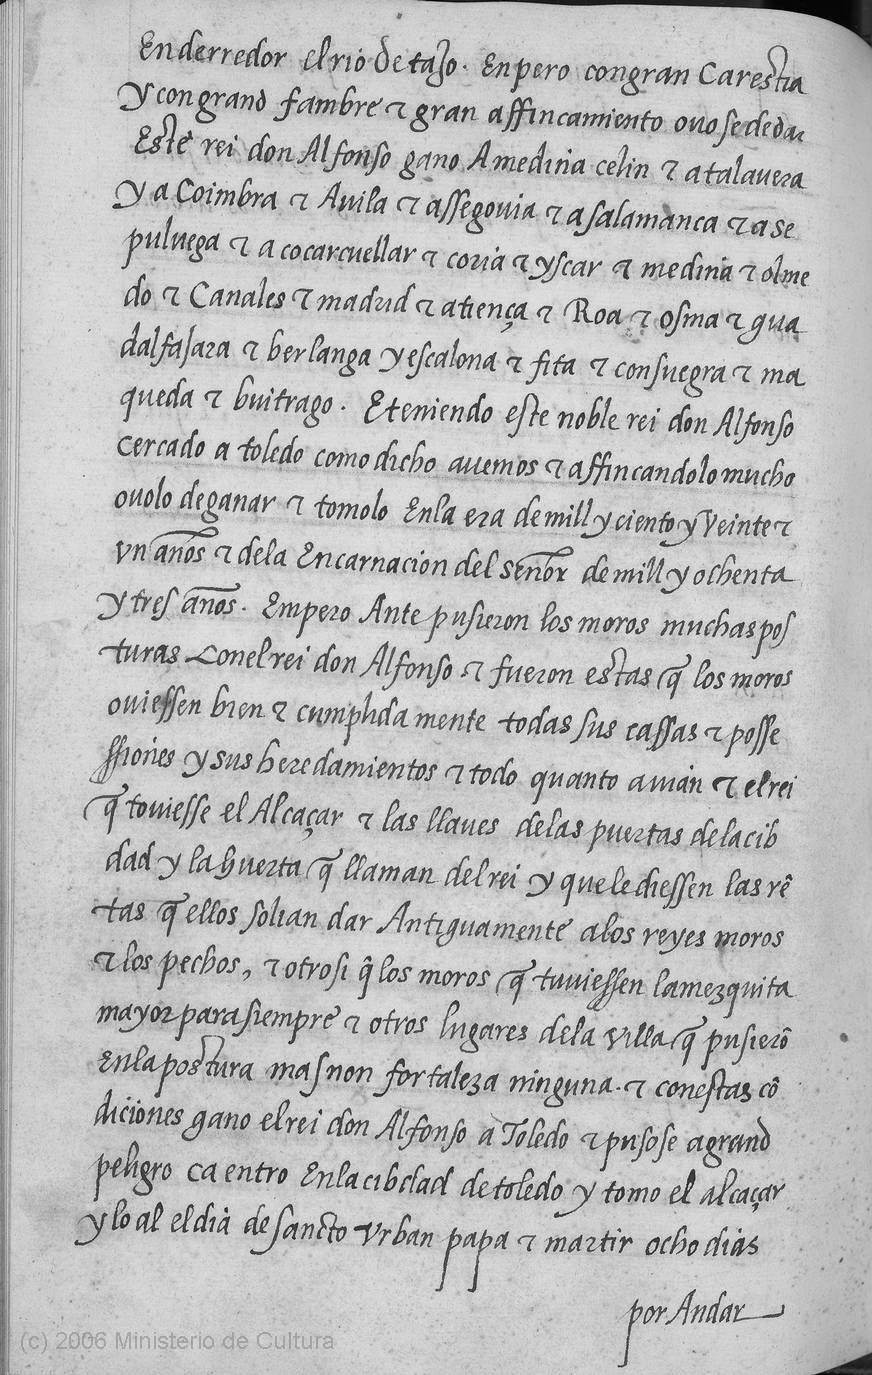 En derredor el rio de tajo. Enpero congran Carestia
y con grand fambre τ gran affincamiento ovo se de dar
Este rei don Alfonso gano A medina celin τ a talavera
y a Coimbra τ Auila τ assegouia τ a salamanca τ a se
puluega τ a cocarcuellar τ coria τ yscar τ medina τ olme
do τ Canales τ madrid τ atiença τ Roa τ osma τ gua
dalfajara τ berlanga y escalona τ fita τ consuegra τ ma
queda τ buitrago. E teniendo este noble rei don Alfonso
cercado a toledo como dicho auemos τ affincandolo mucho
ovolo de ganar τ tomolo Enla era de mill y ciento y veinte τ
vn años τ dela Encarnacion del señor de mill y ochenta
y tres años. Empero Ante pusieron los moros muchas pos
turas Conel rei don Alfonso τ fueron estas q̃ los moros
oviessen bien τ cumplida mente todas sus cassas τ posse
ssiones y sus heredamientos τ todo quanto avian τ el rei
q̃ toviesse el Alcaçar τ las llaves delas puertas dela cib
dad y la huerta q̃ llaman del rei y que le diessen las rẽ
tas q̃ ellos solian dar Antiguamente alos reyes moros
τ los pechos, τ otrosi q̃ los moros q̃ tuviessen la mezquita
mayor para siempre τ otros lugares dela villa q̃ pusierõ
Enla postura mas non fortaleza ninguna. τ conestas cõ
diciones gano el rei don Alfonso a Toledo τ pusose a grand
peligro ca entro Enla cibdad de toledo y tomo el alcaçar
y lo al el dia de sancto Vrban papa τ martir ocho dias
por Andar
(c) 2006 Ministerio de Cultura